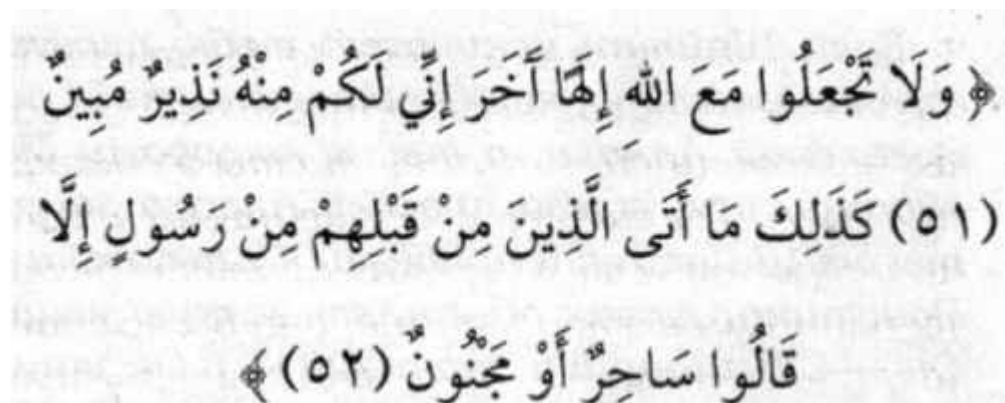 ﴿ وَلَا تَجْعَلُوا مَعَ اللهِ إِلَهًا أَخَرَ إِنِّي لَكُمْ مِنْهُ نَذِيرٌ مُبِينٌ
(٥١) كَذَلِكَ مَا أَتَى الَّذِينَ مِنْ قَبْلِهِمْ مِنْ رَسُولٍ إِلَّا
قَالُوا سَاحِرٌ أَوْ مَجْنُونٌ (٥٢) ﴾